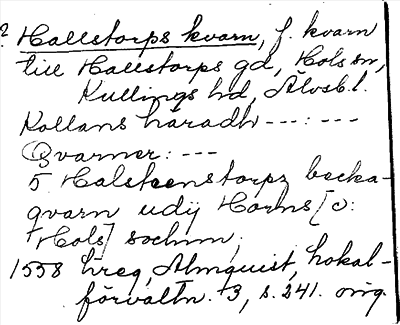 Hallstorps kvarn, f. kvarn
till Hallstorps gd, Hols sn,
Kullings hd, Älvsb. l.
Kollans häradh ---:---
Qvarner: ---
5 Halstenstorps becka-
qvarn udij Horns [o:
Hols] sochnn,
1558 hreg, Almquist, Lokal-
förvaltn. 3, s. 241. orig.